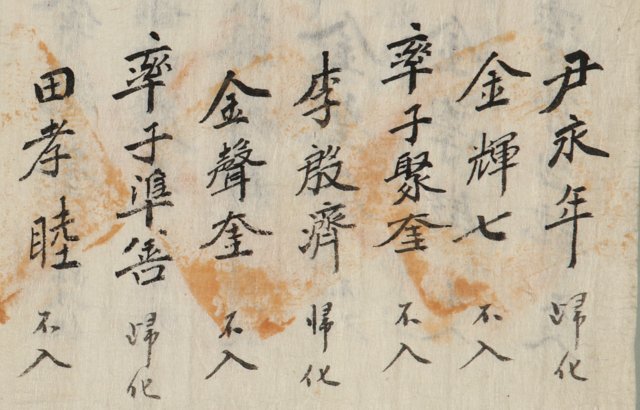 尹永年 歸化
金輝七 不入
率子聚奎 不入
李殷濟 帰化
金聲奎 不入
率子準善 歸化
田孝睦 不入